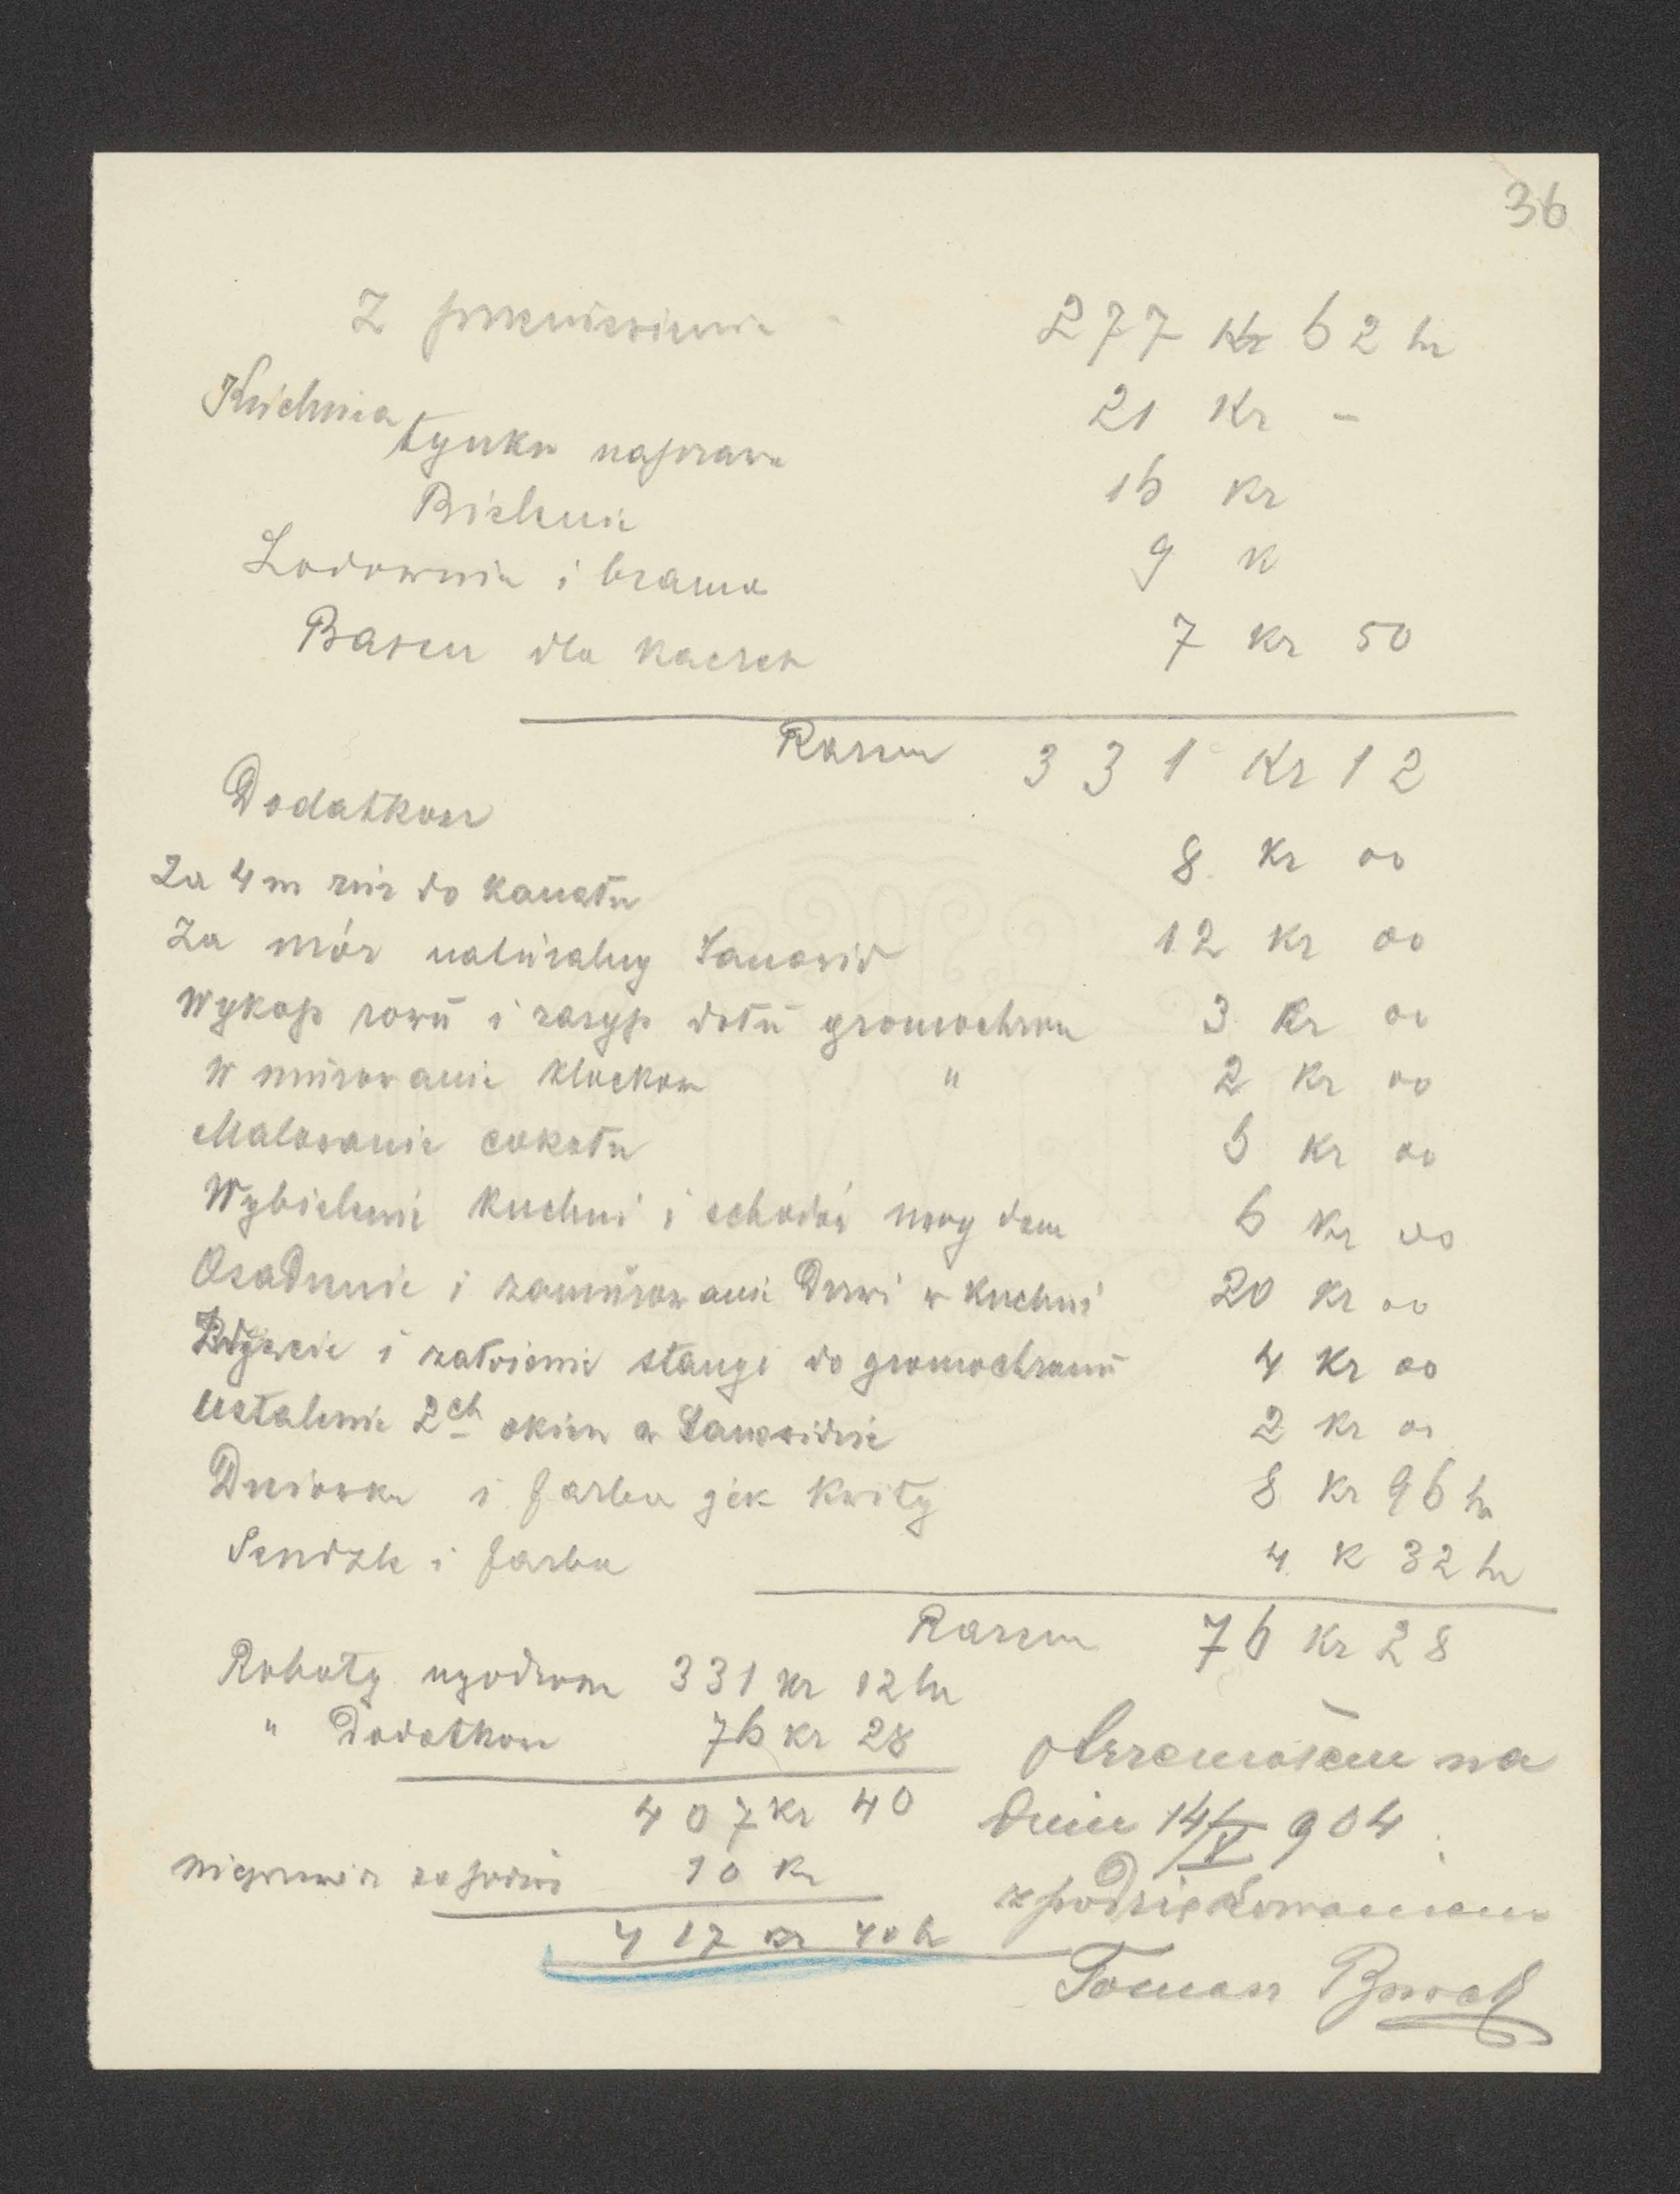 36
Z przeniesienia 277 Kr 62 hr
Kuchnia 21 Kr -
tynku naprawa
Bielenie 16 Kr
Lodownia i brama 9 K
Basen dla kaczek 7 Kr 50
Razem 331 Kr 12
Dodatkowe
Za 4 m rur do kanału 8 Kr 00
Za mór naturalny 12 Kr 00
Wykop rowu i zasyp dołu gromochron 3 Kr 00
W murowanie klocków " 2 Kr 00
Malowanie cokołu 6 Kr 00
Wybielenie kuchni i schodów 6 Kr 00
Osadzenie i zamurowanie Drzwi w kuchni 20 Kr 00
i założenie stangi do gromochronu 4 Kr 00
Ustalenie 2ch okien w 2 Kr 00
Dniówka i farba jak kwity 8 Kr 96 hr
i farba 4 K 32 hr
Razem 76 Kr 28
Roboty ugodzone 331 Kr 12 hr
" Dodatkowe 76 Kr 28
407 Kr 40
10 Kr
417 Kr 40 h
otrzymałem na
dniu 14/V 904
z podziękowaniem
Tomasz